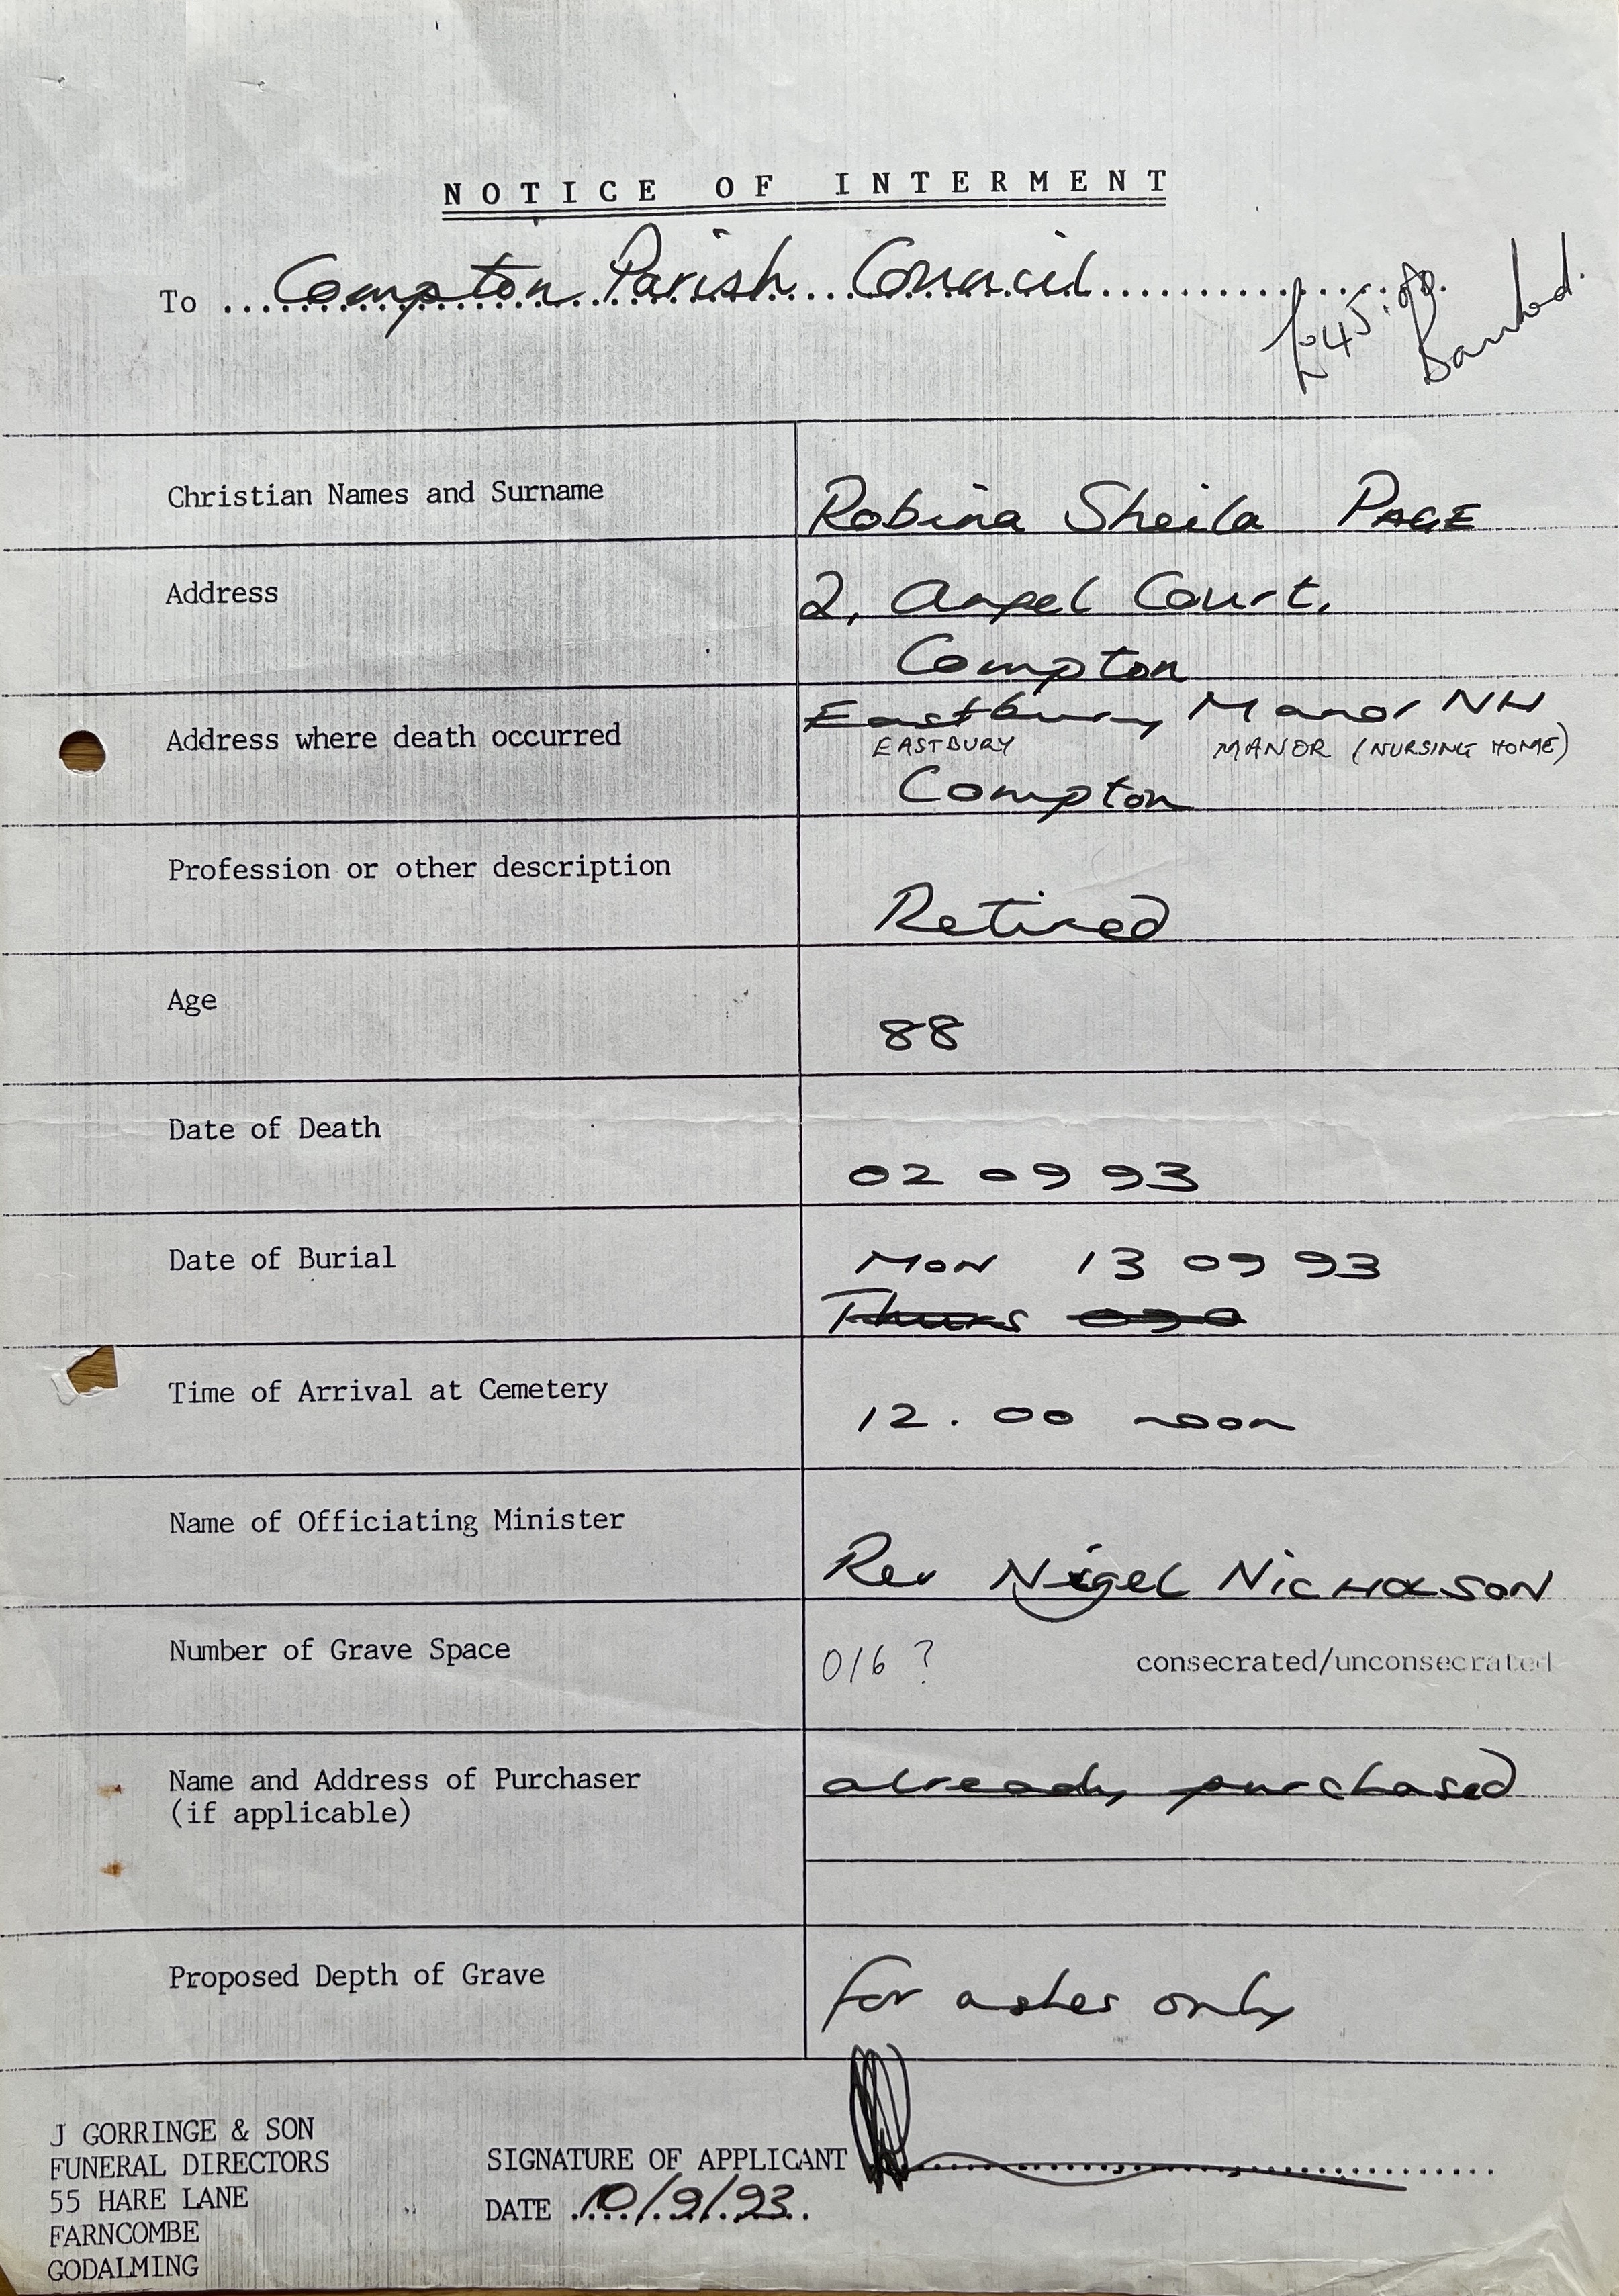 NOTICE OF INTERMENT
To Compton Parish Council
£45.00
Banked.
Christian Names and Surname Robina Sheila PAGE
Address 2, Angel Court,
Compton
Address where death occurred Eastbury Manor NH
EASTBURY MANOR (NURSING HOME)
Compton
Profession or other description Retired
Age 88
Date of Death 02 09 93
Date of Burial MON 13 09 93
Thurs 090
Time of Arrival at Cemetery 12.00 noon
Name of Officiating Minister Rev Nigel NICHOLSON
Number of Grave Space 016 ? consecrated/unconsecrated
Name and Address of Purchaser already purchased
(if applicable)
Proposed Depth of Grave for ashes only
J GORRINGE & SON
FUNERAL DIRECTORS
55 HARE LANE
FARNCOMBE
GODALMING
SIGNATURE OF APPLICANT
DATE 10/9/93